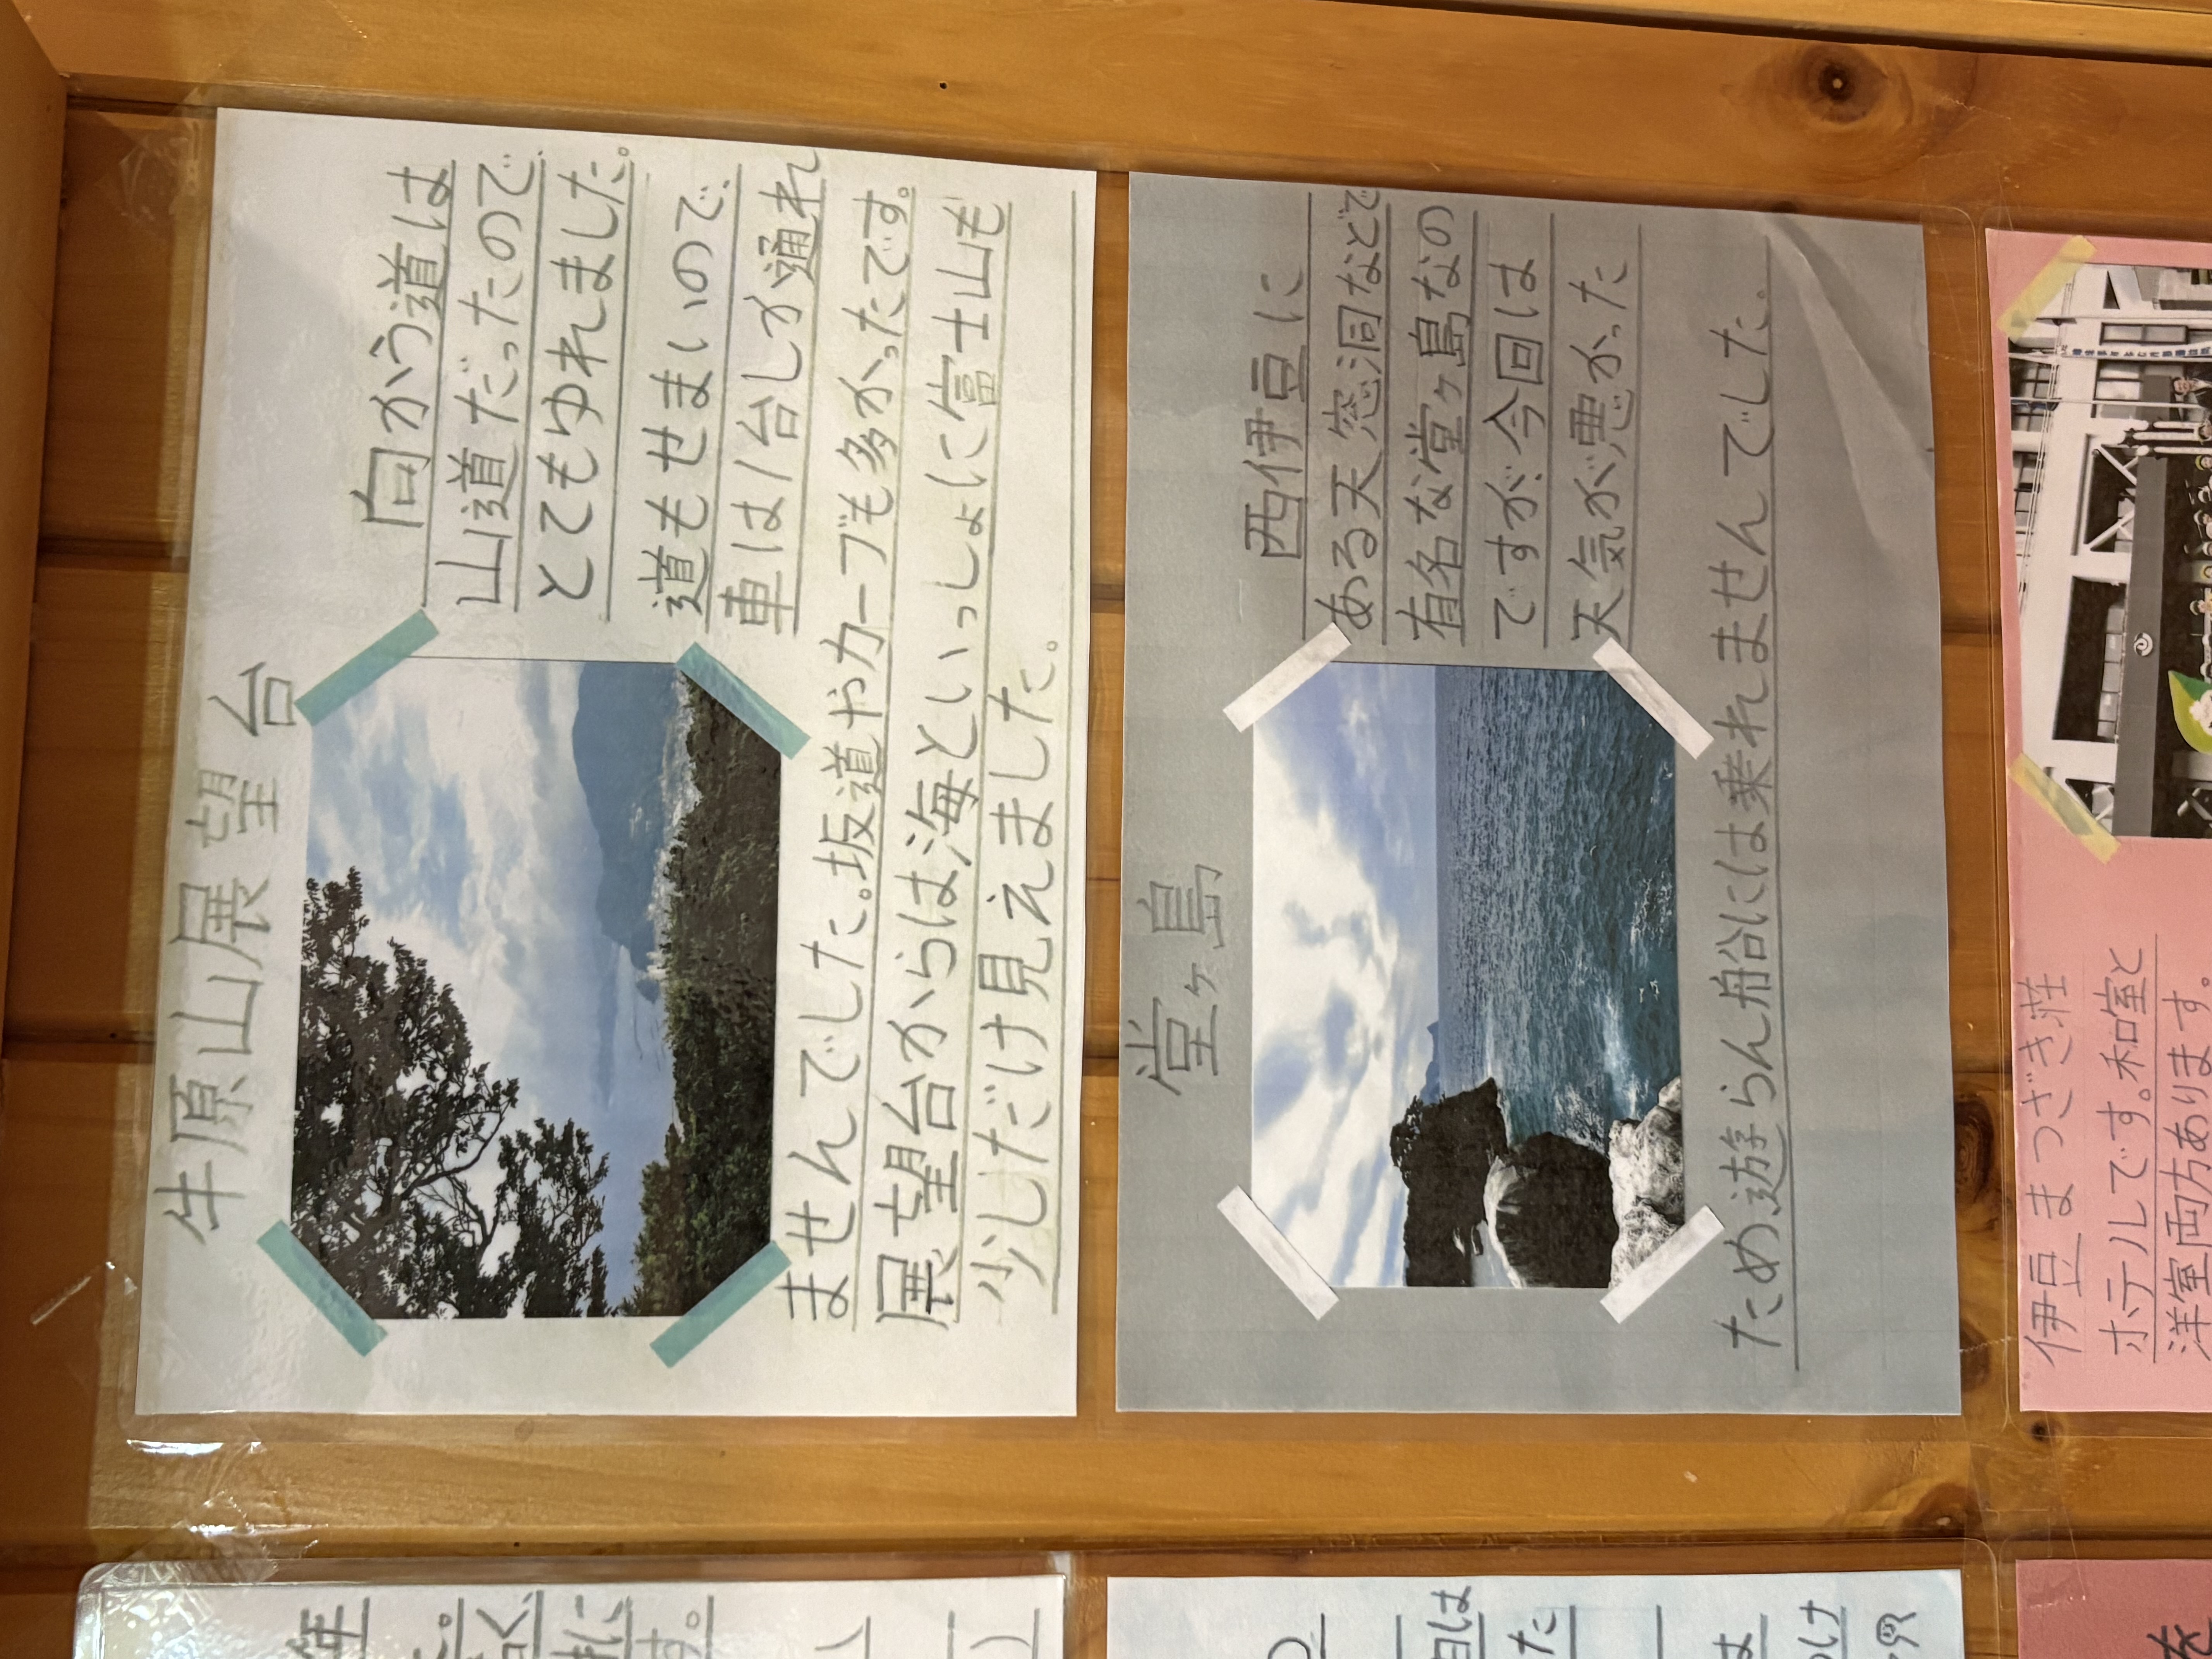 牛原山展望台
向かう道は
山道だったので
とてもゆれました。
道もせまいので
車は1台しか通れ
ませんでした。坂道やカーブも多かったです。
展望台からは海といっしょに富士山も
少しだけ見えました。
堂ヶ島
西伊豆に
ある天窓洞などで
有名な堂ヶ島なの
ですが今回は
天気が悪かった
ため遊らん船には乗れませんでした。
伊豆まつざき荘
ホテルです。和室と
洋室両方あります。